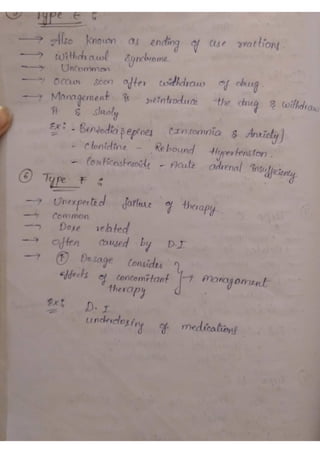 Type E :
→ Also known as ending of use reactions
→ Withdrawl syndrome
→ Uncommon
→ Occur soon after withdraw of drug.
→ Management is reintroduce the drug & withdraw
it slowly
Ex: - Benzodiazepines (Insomnia & Anxiety)
- Clonidine - Rebound Hypertension.
- Corticosteroids - Acute adrenal insufficiency
⑥ Type F :
→ Unexpected failure of therapy.
→ common
→ Dose related
→ often caused by D.I
→ ① Dosage consider
effects of concomitant } → management
therapy
Ex: D. I
underdosing of medications